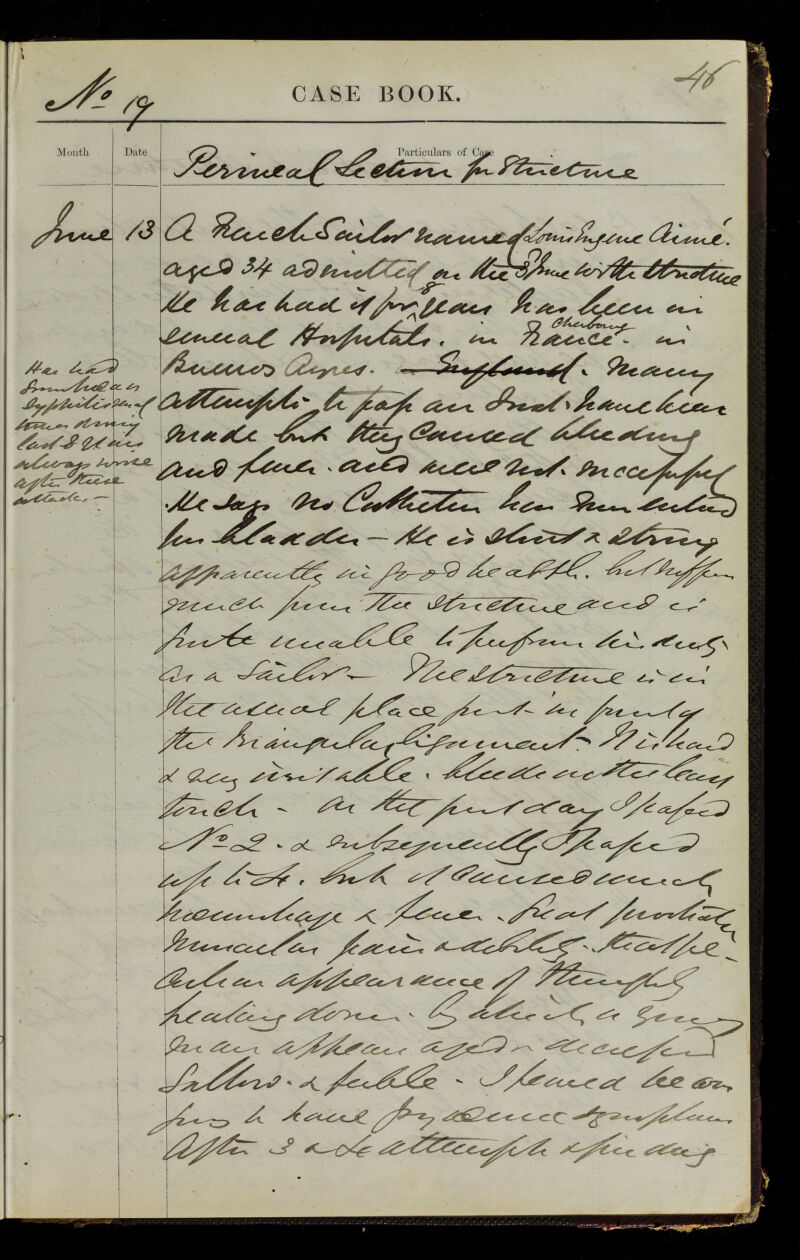 46
No 19
CASE BOOK.
Month
Date
Particulars of Case
Perineal Section for Stricture
June 13 A French Sailor named Louis Eugene Aimé.
aged 34 admitted on the 8 June with stricture
He has had it for 8 years has been in
several Hospitals. in France. Cherbourg in
Buenos Ayres. England. Many
attempts to pass an Inst. have been
made but they caused bleeding
and fever. and were not successful
He says no Catheter has ever entered
his bladder – He is stout & strong
apparently in good health. but suffers
much from the stricture and is
quite unable to perform his duty
as a Sailor – The stricture is in
the usual place just in front of
the triangular ligament. It is hard
& very irritable. bleeds on the least
touch – On the first day I passed
No 2. & subsequently I passed
up to 4. but it caused much
hæmorrhage & fever. Great prostration
Muscular pain & debility. that pe-
culiar appearance of
breaking down. by which a young
man appears aged & decrepid
Sallow. & feeble – I feared he was
going to have pyæmic symptoms
After 3 or 4 attempts & finding
Has had
Gonorrhœa &
Syphilis several
times during
last 8 years
always worse
after these
attacks. –